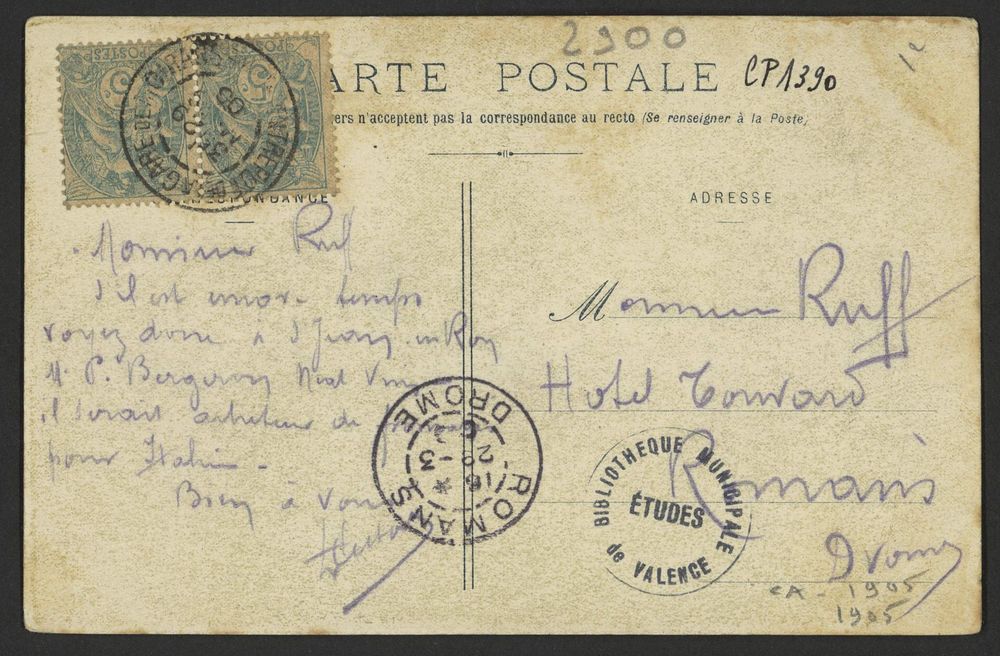 2900
CP1390
ARTE POSTALE
ers n'acceptent pas la correspondance au recto (Se renseigner à la Poste)
ADRESSE
Monsieur Ruff
s'il est encore temps
voyez donc à St Jean en Roy
M. P. Bergeron Négt
il serait acheteur de
pour Italie -
Bien à vous
Monsieur Ruff
Hotel
Romans
Drome
ROMANS
DROME
BIBLIOTHEQUE MUNICIPALE
ÉTUDES
de VALENCE
CA - 1905
1905